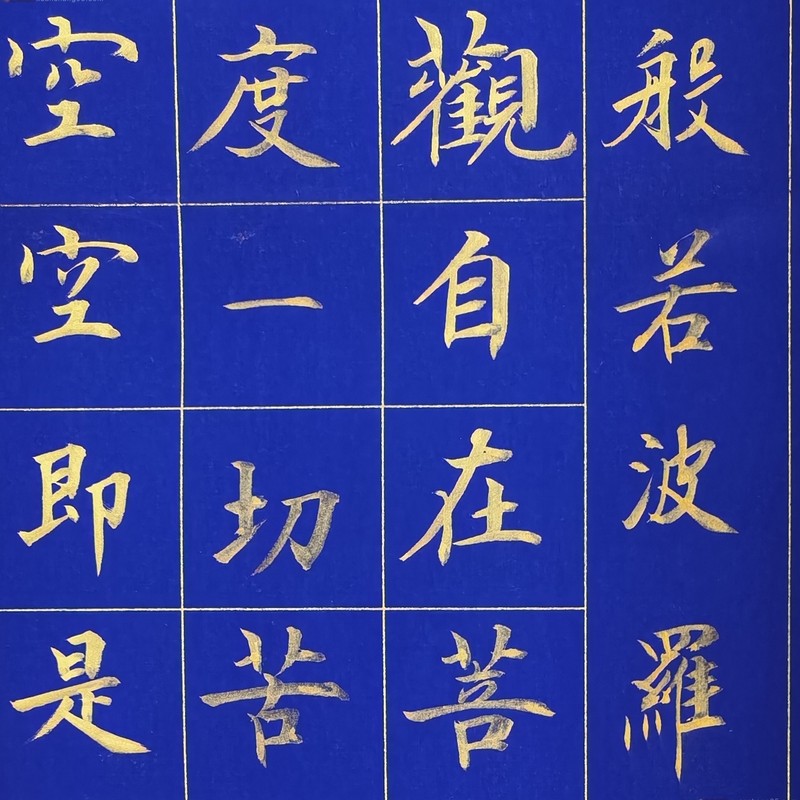 般若波羅
觀自在菩
度一切苦
空空即是